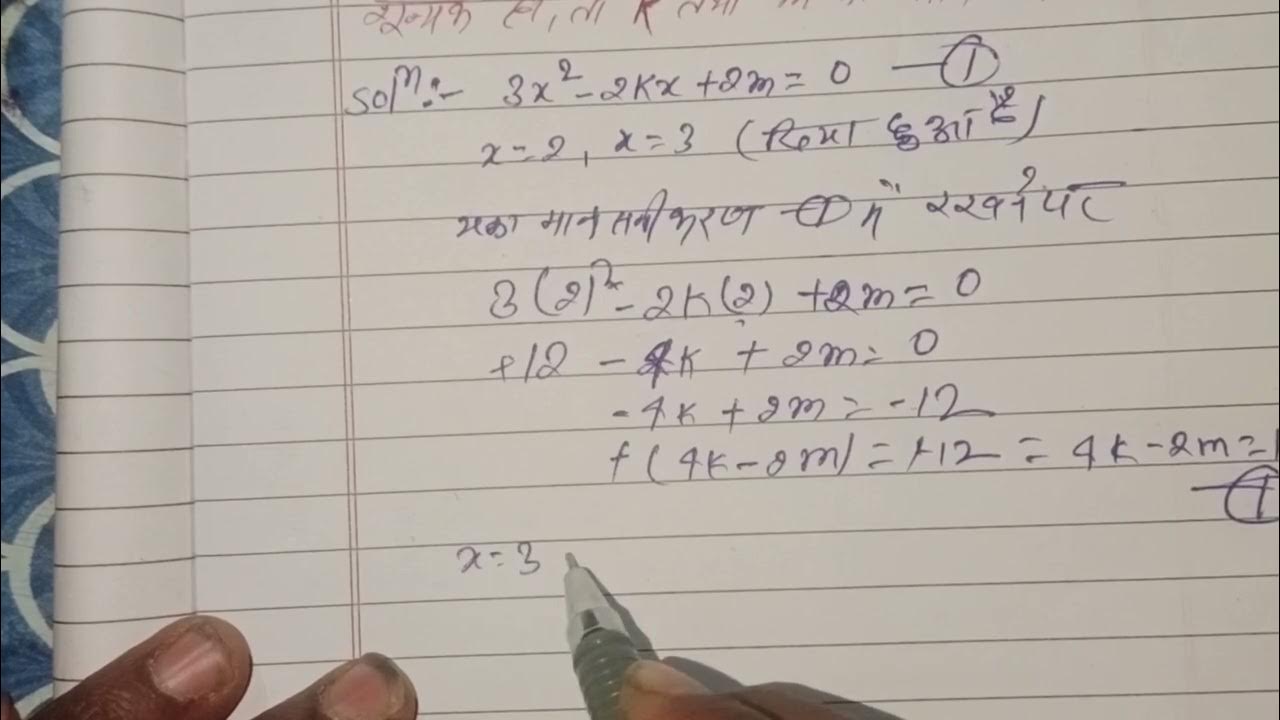 तो K तथा
Solⁿ:- 3x² - 2Kx + 2m = 0 —①
x = 2, x = 3 (दिया हुआ है)
मान समीकरण ① में रखने पर
3(2)² - 2K(2) + 2m = 0
+12 - 4K + 2m = 0
-4K + 2m = -12
+(4K - 2m) = +12 = 4K - 2m = 1
—①
x = 3